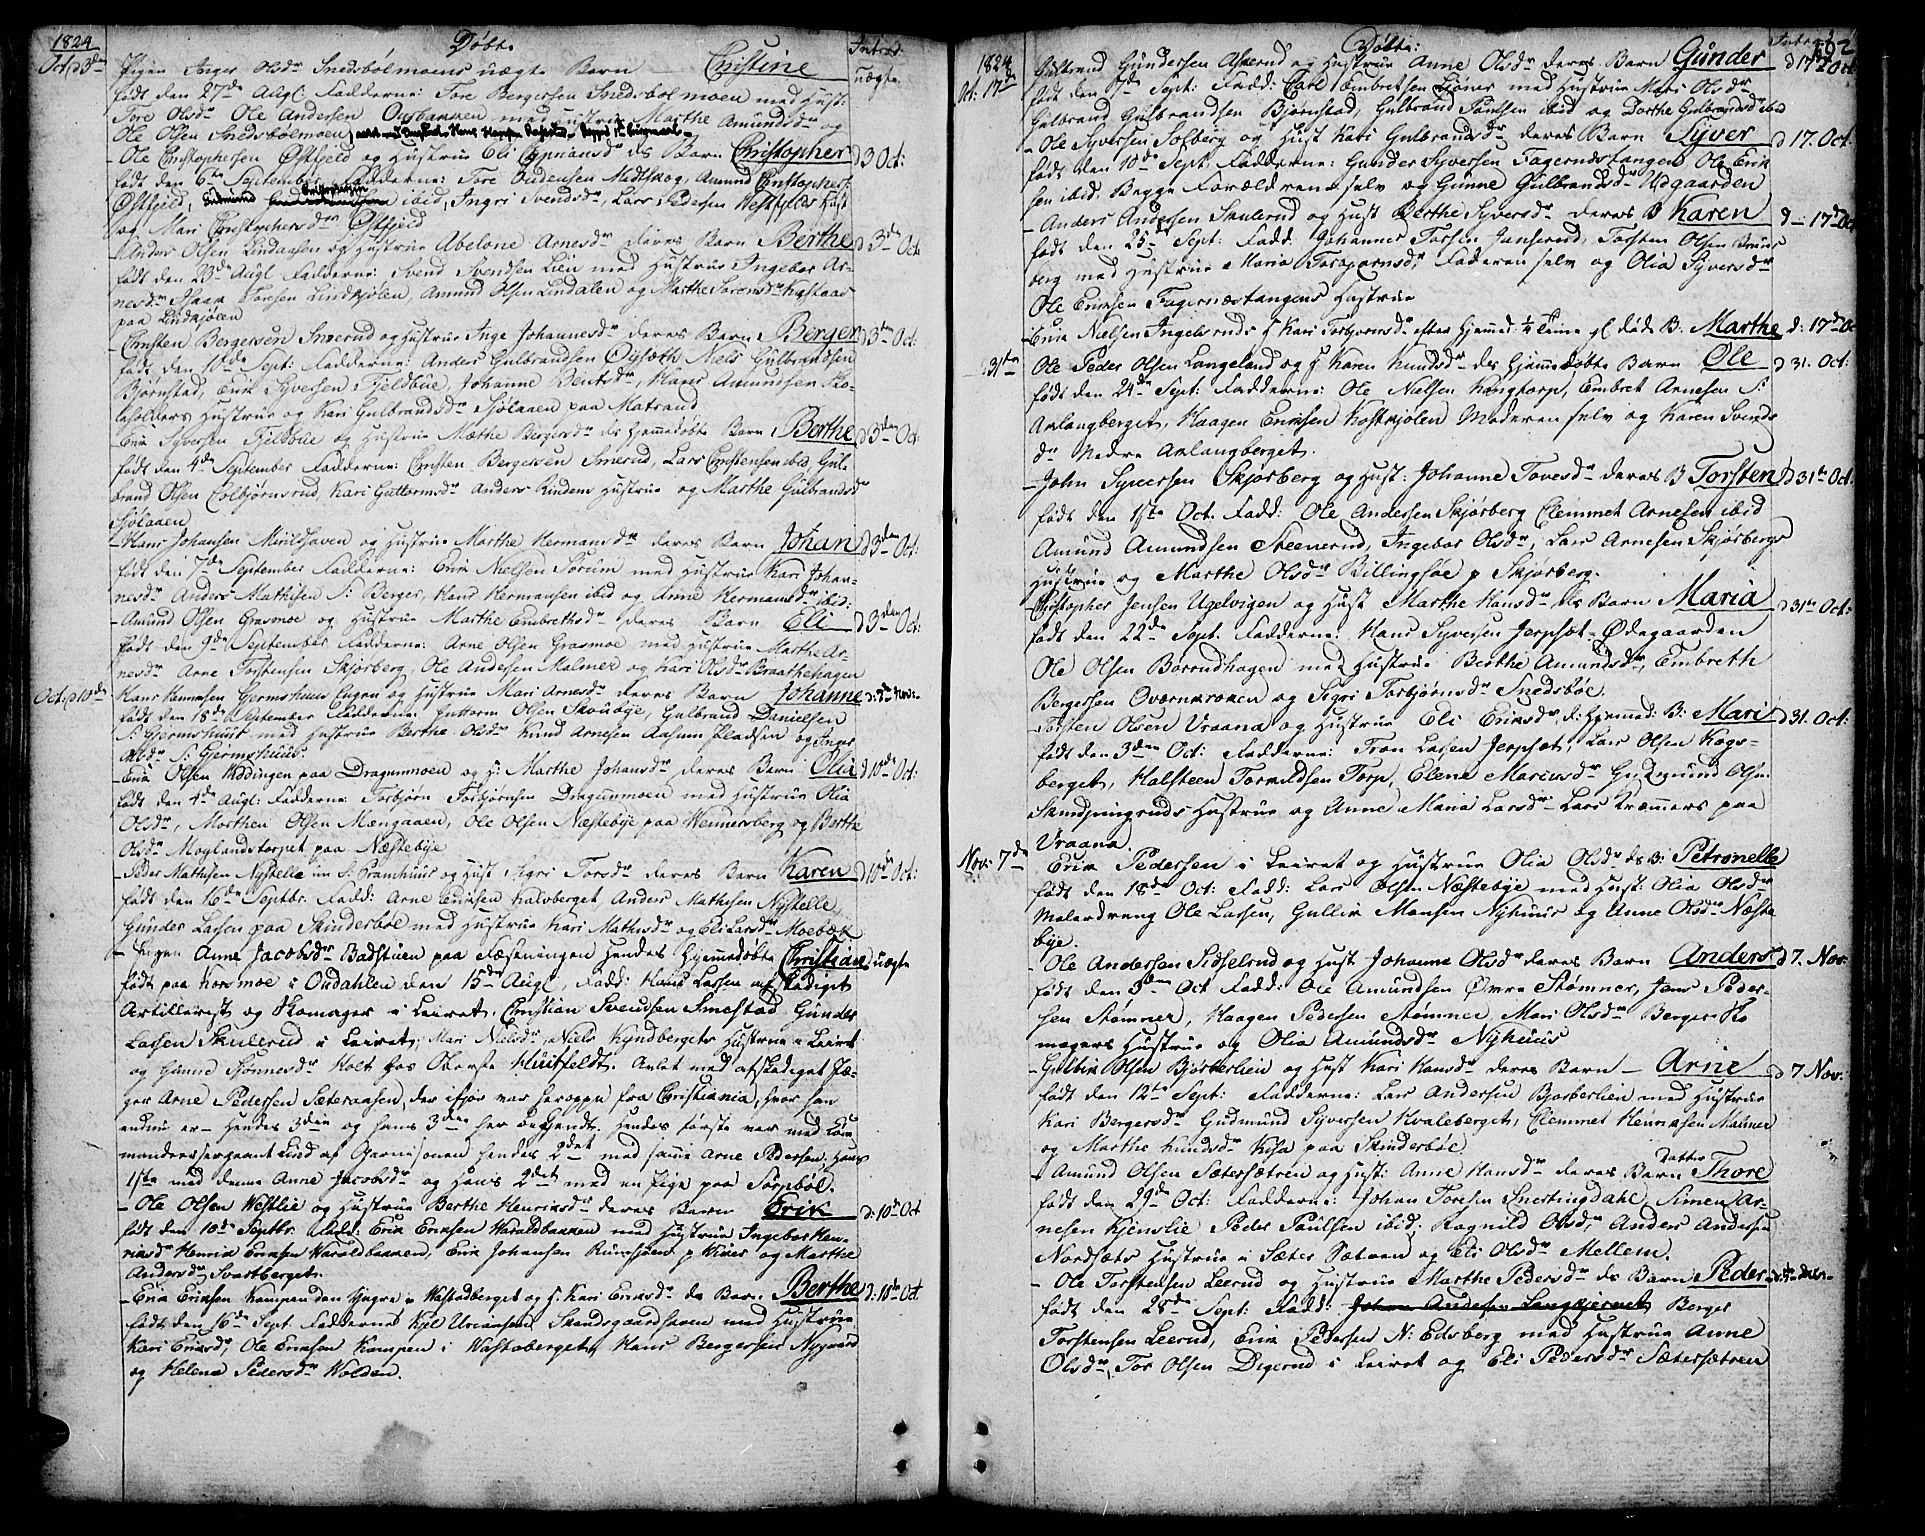 1824 Døbte Introd.
Oct. d 3de Pigen Inger Olsdr Snedsbølmoens uægte Barn — Christine uægte
født den 27de Augl. Fadderne: Tore Bergersen Snedsbølmoen med Hust:
Tore Olsdr Ole Andersen med Hustrue Marthe Amundsdr og
Ole Olsen Snedsbølmoen
– Ole Christophersen Østfjeld og Hustrue Eli Cypriansdr ds Barn Christopher d 3 Oct:
født den 6te September Fadderne: Tore Oudensen Midtskog, Amund Christophers:
Østfjeld, ibid, Ingri Svendsdr, Lars Pedersen Hust
og Mari Christophersdr Østfjeld
– Anders Olsen Lindaasen og Hustrue Abelone Arnesdr deres Barn Berthe d 3de Oct
født den 23de Augl Fadderne: Svend Svendsen Lien med Hustrue Ingebor Ar-
nesdr Isaac Torsen Lindkjølen, Amund Olsen Lindalen og Marthe
paa Lindkjølen
– Christen Bergersen Smerud og Hustrue Inge Johannesdr deres Barn Berger d 3de Oct:
født den 10de Sept: Fadderne: Anders Gulbrandsen Nels Gulbrandsen
Bjørnstad, Erik Syversen Fjeldbue, Johanne Bentsdr, Hans Amundsen Sko-
leholders Hustrue og Kari Gulbrandsdr Sjølaaen paa Matrand
– Erik Syversen Fjeldbue og Hustrue Mæthe Bergersdr ds hjemmedøbte Barn Berthe d 3de Oct:
født den 4de September Fadderne: Christen Bergersen Smerud, Lars Christensen ibid, Gul-
brand Olsen Colbjørnsrud, Kari Guttormsdr Anders Hustrue og Marthe Gulbrandsdr
Sjølaaen
– Hans Johansen og Hustrue Marthe Hermansdr deres Barn Johan d 3de Oct:
født den 7de September Fadderne: Erik Nielsen med Hustrue Kari Johan-
nesdr Anders Mathisen S: Berger, Hans Hermansen ibid og Anne Hermansdr ibid:
– Amund Olsen Grasmoe og Hustrue Marthe Embrethsdr deres Barn Eli d 3de Oct:
født den 9de September Fadderne: Arne Olsen Grasmoe med Hustrue Marthe Ar-
nesdr Arne Torstensen Skjørberg, Ole Andersen Malmer og Kari Olsdr Braathehagen
Oct: d 10de Hans Hansen Gjermshuus Eugen og Hustrue Mari Arnesdr deres Barn Johanne d. Nov:
født den 18de September Fadderne: Guttorm Olsen Gulbrand Danielsen
S: Gjermshuus med Hustrue Berthe Olsdr Knud Arnesen Aasum Pladsen og Inger
Olsdr S: Gjermshuus.
– Erik Olsen paa Dragunmoen og H: Marthe Johansdr deres Barn Olia d 10de Oct:
født den 4de Augl: Fadderne: Torbjørn Torbjørnsen Dragunmoen med Hustrue Olia
Olsdr, Morthen Olsen Mængaaen, Ole Olsen Næstebye paa Wennersberg og Berthe
Olsdr Moglandstorpet paa Næstebye
– Peder Mathesen Nystelle S: Pramhuus og Hust Sigri Torsdr deres Barn Karen d 10de Oct:
født den 16de Septbr. Fadd: Arne Eriksen Kalsberget, Anders Mathesen Nystelle,
Gunder Larsen paa Skinderbøe med Hustrue Kari Mathisdr og Eli Larsdr Moebæk
– Pigen Anne Jacobsdr Badstuen paa Fæstningen Hendes hjemmedøbte Christian uægte
født paa Korsmoe i Oudahlen den 15de Augl, Fadd: Hans Larsen afskediget
Artillerist og Skomager i Leiret, Christian Svendsen Smestad, Gunder
Larsen Skulerud i Leiret, Mari Nielsdr, Niels Kyndbergets Hustrue i Leiret
og Gunne Tønnesdr Holt hos Oberste Huitfeldt. Avlet med afskediget Jæ-
ger Arne Pedersen Sæteraasen, der ifjor var her oppe fra Christiania, hvor han
endnu er — Hendes 3die og hans 3die her bekjendt. Hendes første var med Kom
mandeersergeant Lind af Garnisonen hendes 2det med samme Arne Pedersen. Hans
1ste med denne Anne Jacobsdr og Hans 2det med en Pige paa Torpbøl.
– Ole Olsen Westlie og Hustrue Berthe Henriksdr deres Barn Erik d: 10de Oct
født den 10de Septbr. Fadd: Erik Eriksen Waraldbakken med Hustrue Ingebor Hen-
riksdr Henrik Eriksen Waraldbakken, Erik Johansen p og Marthe
Andersdr Svartberget.
– Erik Eriksen Kampen den Yngre i Wæstaberget og H: Kari Eriksdr ds Barn Berthe d: 10de Oct.
født den 16de Sept. Fadderne: Kjel Uriansen Skandsgaardhaven med Hustrue
Kari Eriksdr, Ole Eriksen Kampen i Wæstaberget, Hans Bergersen Nygaard
og Helene Pedersdr Wolden.
1824 Døbte: Introd. 192
Oct: 17de Gulbrand Gundersen Askerud og Hustrue Anne Olsdr deres Barn Gunder d 17de Oct.
født den 7de Sept: Fadd: Carl Embretsen med Hustrue Mari Olsdr
Gulbrand Gulbrandsen Bjørnstad, Gulbrand Paulsen ibid og Dorthe Gulbrandsdr ibid
– Ole Syversen Sofberg og Hust Kari Gulbrandsdr deres Barn Syver d 17. Oct.
født den 10de Sept. Fadderne: Gunder Syversen Fagernæstangen Ole Erik
sen ibid. Begge Forældrene selv og Gunne Gulbrandsdr Udgaarden
– Anders Andersen Skulerud og Hust Berthe Syversdr deres B Karen d – 17 Oct
født den 25de Sept: Fadd. Johannes Torsen Janserud, Torsten Olsen
berg med Hustrue Maria Fadderen selv og Olia Syversdr
Ole Eriksen Fagernæstangens Hustrue
– Erik Nielsen Ingelsruds H Kari Torbjørnsdr efter Hjemmed: gl døde B: Marthe d: 17de Oc
31te Ole Peder Olsen Langeland og H Karen Knudsdr des Hjemmedøbte Barn Ole d 31. Oct:
født den 24de Sept: Fadderne: Ole Nielsen Kongtorp, Embret Arnesen S:
Anlangberget, Haagen Eriksen Kostkjølen Moderen selv og Karen Svends
dr Nedre Anlangberget.
– John Syversen Skjørberg og Hust: Johanne Tovesdr deres B Torsten d 31te Oct:
født den 1ste Oct. Fadd: Ole Andersen Skjørberg Clemmet Arnesen ibid
Amund Amundsen Steenerud, Ingebor Olsdr, Lars Arnesen Skjørbergs
Hustrue og Marthe Olsdr Billingsøe p Skjørberg.
Christopher Jensen Ugelvigen og Hust Marthe Hansdr ds Barn Maria d 31te Oct:
født den 22de Sept: Fadderne: Hans Syversen Jerpset-Ødegaarden
Ole Olsen Borrudhagen med Hustrue Berthe Amundsdr, Embreth
Bergersen Overnkroken og Sigri Torbjørnsdr Snedsbøe.
Torsten Olsen Vraana og Hustrue Eli Eriksdr, d: hjemmed: B: Mari d 31. Oct:
født den 3den Oct: Fadderne: Tron Larsen Jerpset, Lars Olsen Kogs-
berget, Halsteen Torkildsen Torp, Elene Mariusdr Gudmund Olsen
Skindpungruds Hustrue og Anne Maria Larsdr Lars Kræmmers paa
Vraana.
Nov: 7de Erik Pedersen i Leiret og Hustrue Olia Olsdr ds B: Petronelle
født den 18de Oct: Fadd: Lars Olsen Næstebye med Hust: Olia Olsdr
Malerdreng Ole Larsen, Gullik Monsen Nyhuus og Anne Olsdr Næste
bye.
– Ole Andersen Sidselrud og Hust Johanne Olsdr deres Barn Anders d 7. Nov:
født den 3den Oct Fadd: Ole Amundsen Øvre Stømner, Jens Peder-
sen Stømner, Haagen Pedersen Stømner, Mari Olsdr Berger Sko
magers Hustrue og Olia Amundsdr Nyhuus
– Gullik Olsen Bjørberlien og Hust Kari Hansdr deres Barn – Arne d 7 Nov:
født den 12te Sept: Fadderne: Lars Andersen Bjørberlien med Hustrue
Kari Bergersdr Gudmund Syversen Kvaleberget, Clemmet Henriksen Malmer
og Marthe Knudsdr Kisa paa Skinderbøe.
– Amund Olsen Sætersætren og Hust: Anne Hansdr deres Barn Datter Thore
født den 29de Oct: Fadderne: Johan Torsen Snertingdahl, Simen Ar-
nesen Kjenslie Peder Paulsen ibid: Ragnild Olsdr, Anders Andersen
Nordsæts Hustrue i Sæter Sætren og Eli Olsdr Mellem.
– Ole Torstensen Leerud og Hustrue Marthe Pedersdr ds Barn Peder
født den 28de Sept: Fadd: Johan Andersen Langkjernet, Berger
Torstensen Leerud, Erik Pedersen N: Edsberg med Hustrue Anne
Olsdr, Tor Olsen Digerud i Leiret og Eli Pedersdr Sætersætren